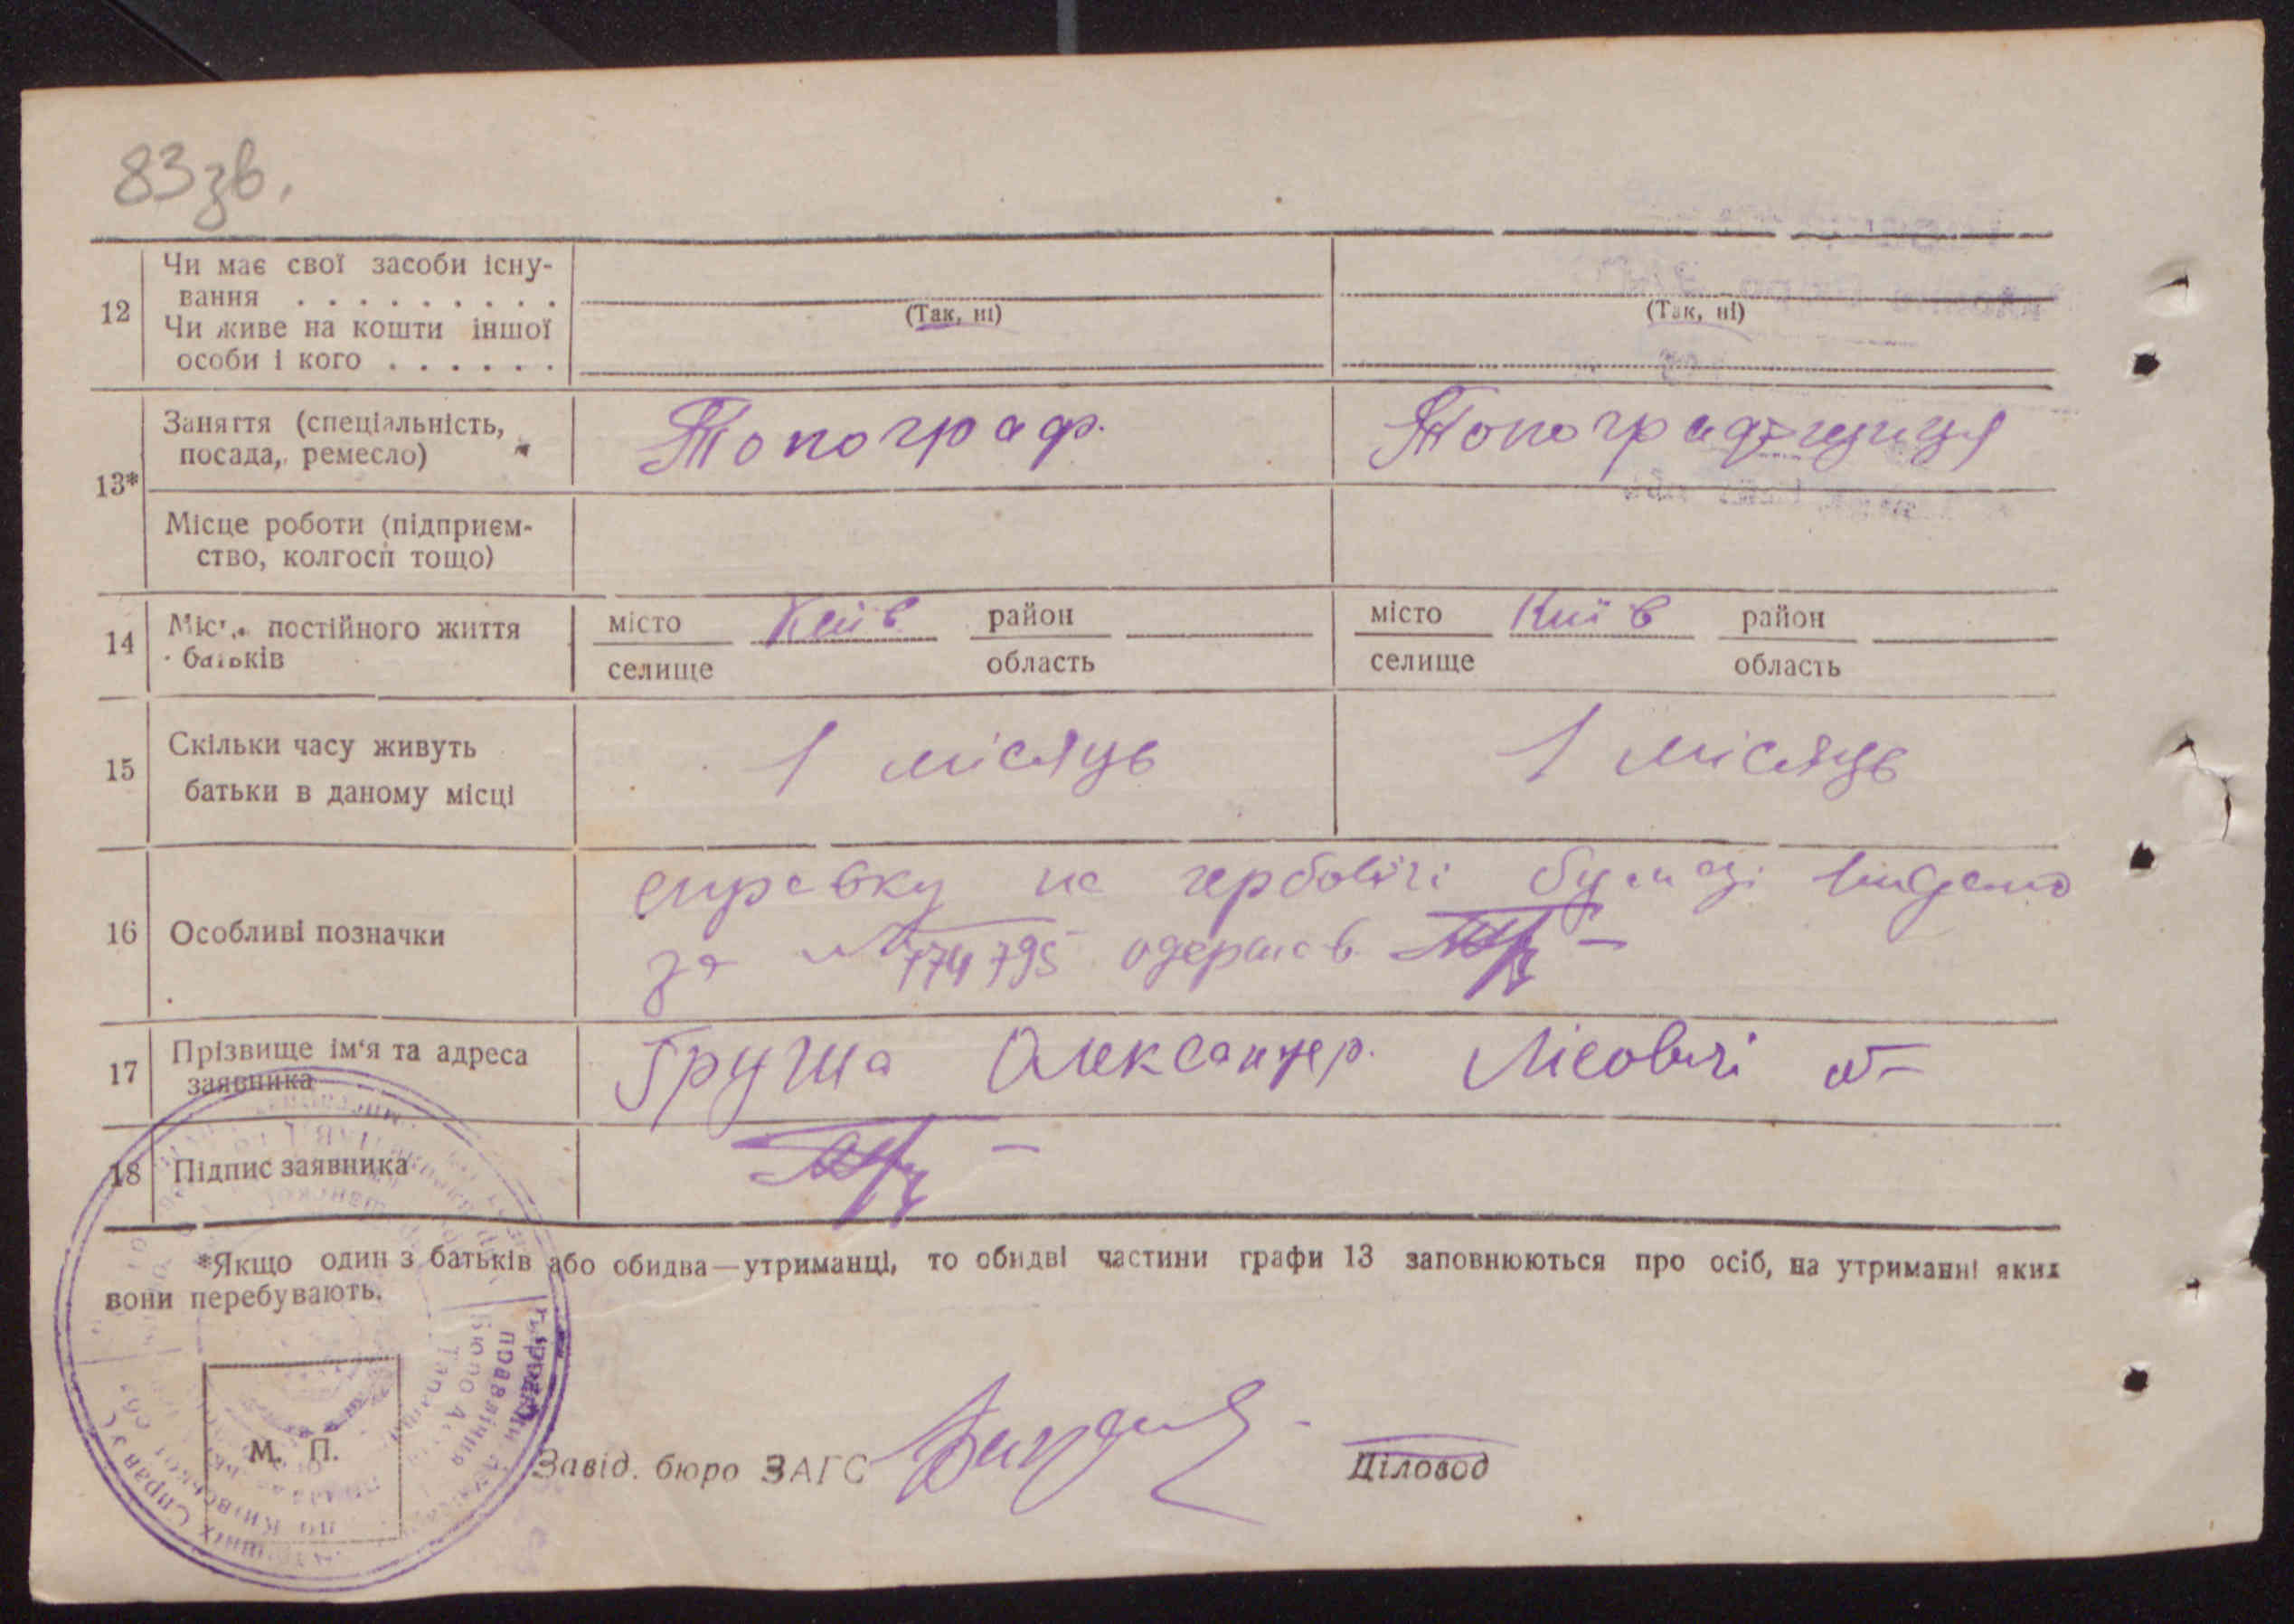 83зв.
12
Чи має свої засоби існу-
вання . . . . . . . . .
(Так, ні)
(Так, ні)
Чи живе на кошти іншої
особи і кого . . . . . .
13*
Заняття (спеціальність,
посада, ремесло)
Топограф.
Топографщиця
Місце роботи (підприєм-
ство, колгосп тощо)
14
Місце постійного життя
батьків
місто Київ район
селище область
місто Київ район
селище область
15
Скільки часу живуть
батьки в даному місці
1 місяць
1 місяць
16
Особливі позначки
справку на гербовій бумазі видано
за № 174795 одержав
17
Прізвище ім'я та адреса
заявника
Груша Олександер. Лісовичі
18
Підпис заявника
*Якщо один з батьків або обидва—утриманці, то обидві частини графи 13 заповнюються про осіб, на утриманні яких
вони перебувають.
М. П.
Завід. бюро ЗАГС
Діловод